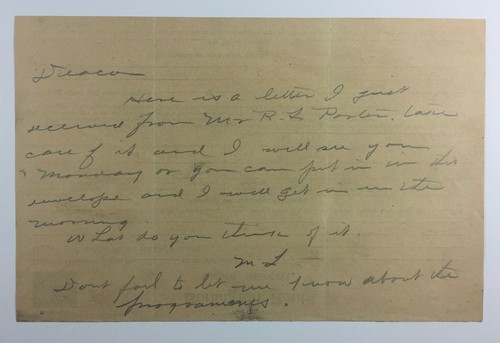 Deacon
Here is a letter I just
received from Mr R. L. Porter. Take
care of it and I will see you
Monday or you can put in in the
envelope and I will get in in the
morning.
What do you think of it.
M L
Dont fail to let me know about the
programmes.